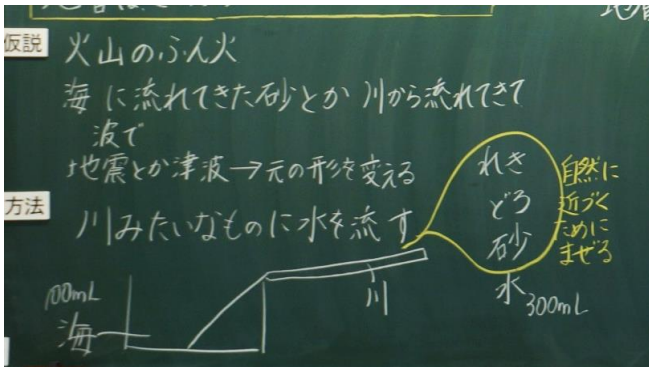 仮説
火山のふん火
海に流れてきた砂とか川から流れてきて
波で
地震とか津波→元の形を変える
方法
川みたいなものに水を流す
れき
どろ
砂
水 300mL
自然に
近づく
ために
まぜる
川
100mL
海